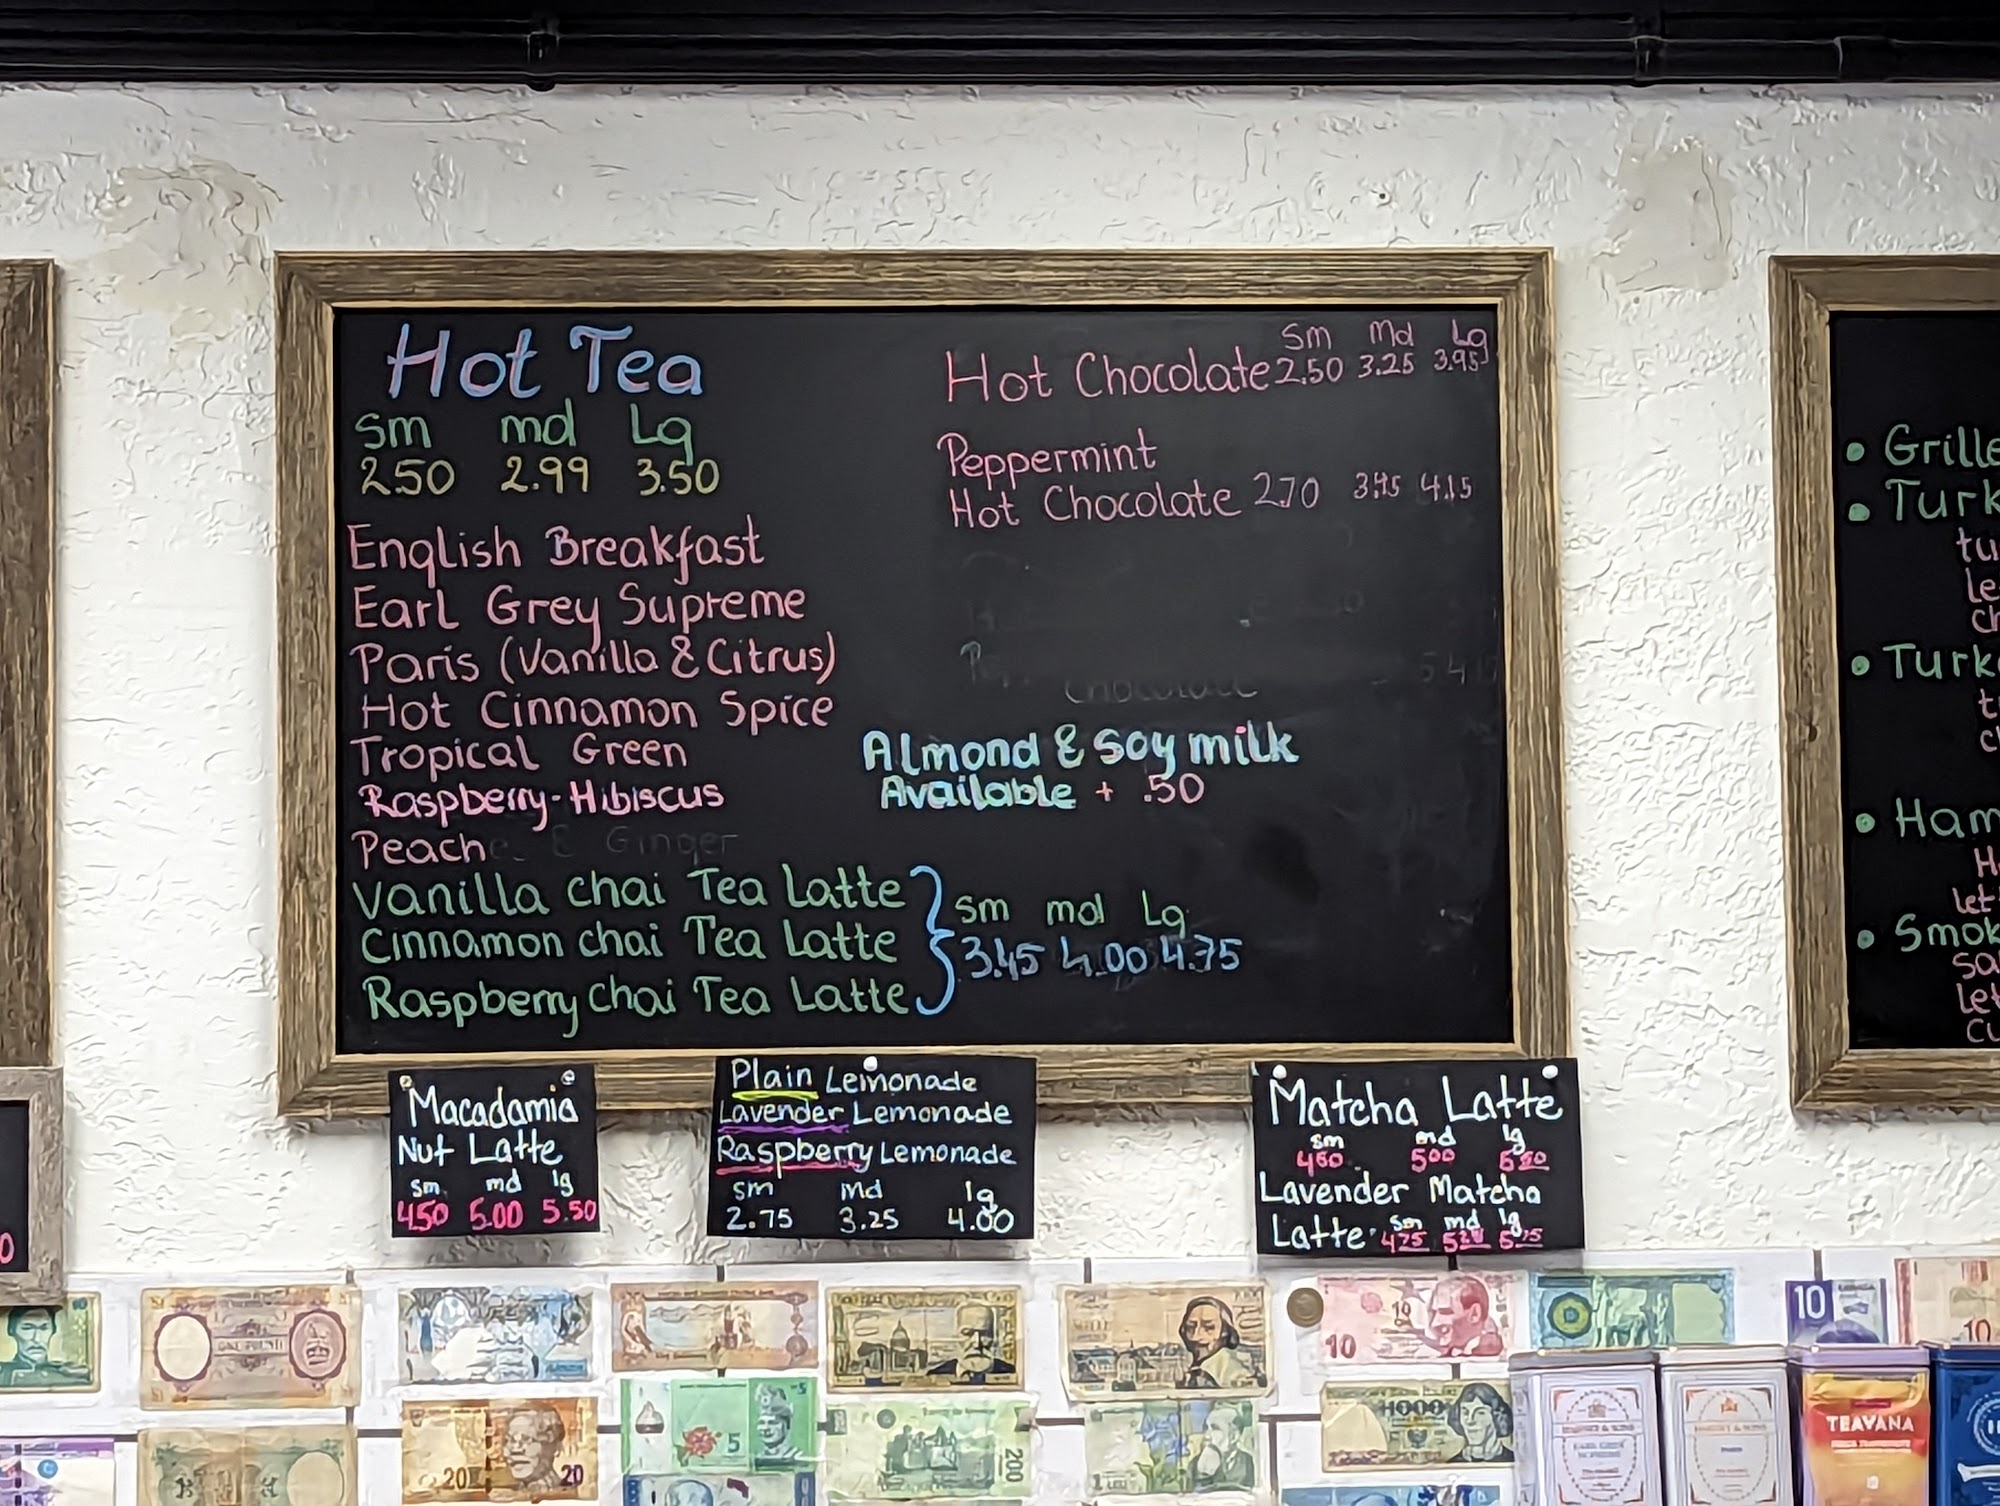 Hot Tea
sm md Lg
2.50 2.99 3.50
English Breakfast
Earl Grey Supreme
Paris (Vanilla & Citrus)
Hot Cinnamon Spice
Tropical Green
Raspberry-Hibiscus
Peach
& Ginger
Vanilla chai Tea Latte
Cinnamon chai Tea Latte
Raspberry chai Tea Latte
sm md Lg
3.45 4.00 4.75
Sm Md Lg
Hot Chocolate 2.50 3.25 3.95
Peppermint
Hot Chocolate 2.70 3.45 4.15
Chocolate
Almond & Soy milk
Available + .50
Grille
Turk
tu
le
ch
Turk
Ham
H
let
Smok
sa
let
cu
Macadamia
Nut Latte
sm md lg
4.50 5.00 5.50
Plain Lemonade
Lavender Lemonade
Raspberry Lemonade
sm md lg
2.75 3.25 4.00
Matcha Latte
sm md lg
4.50 5.00
Lavender Matcha
Latte sm md lg
4.75 5.75
10
10
10
20 20
5
200
1000
TEAVANA